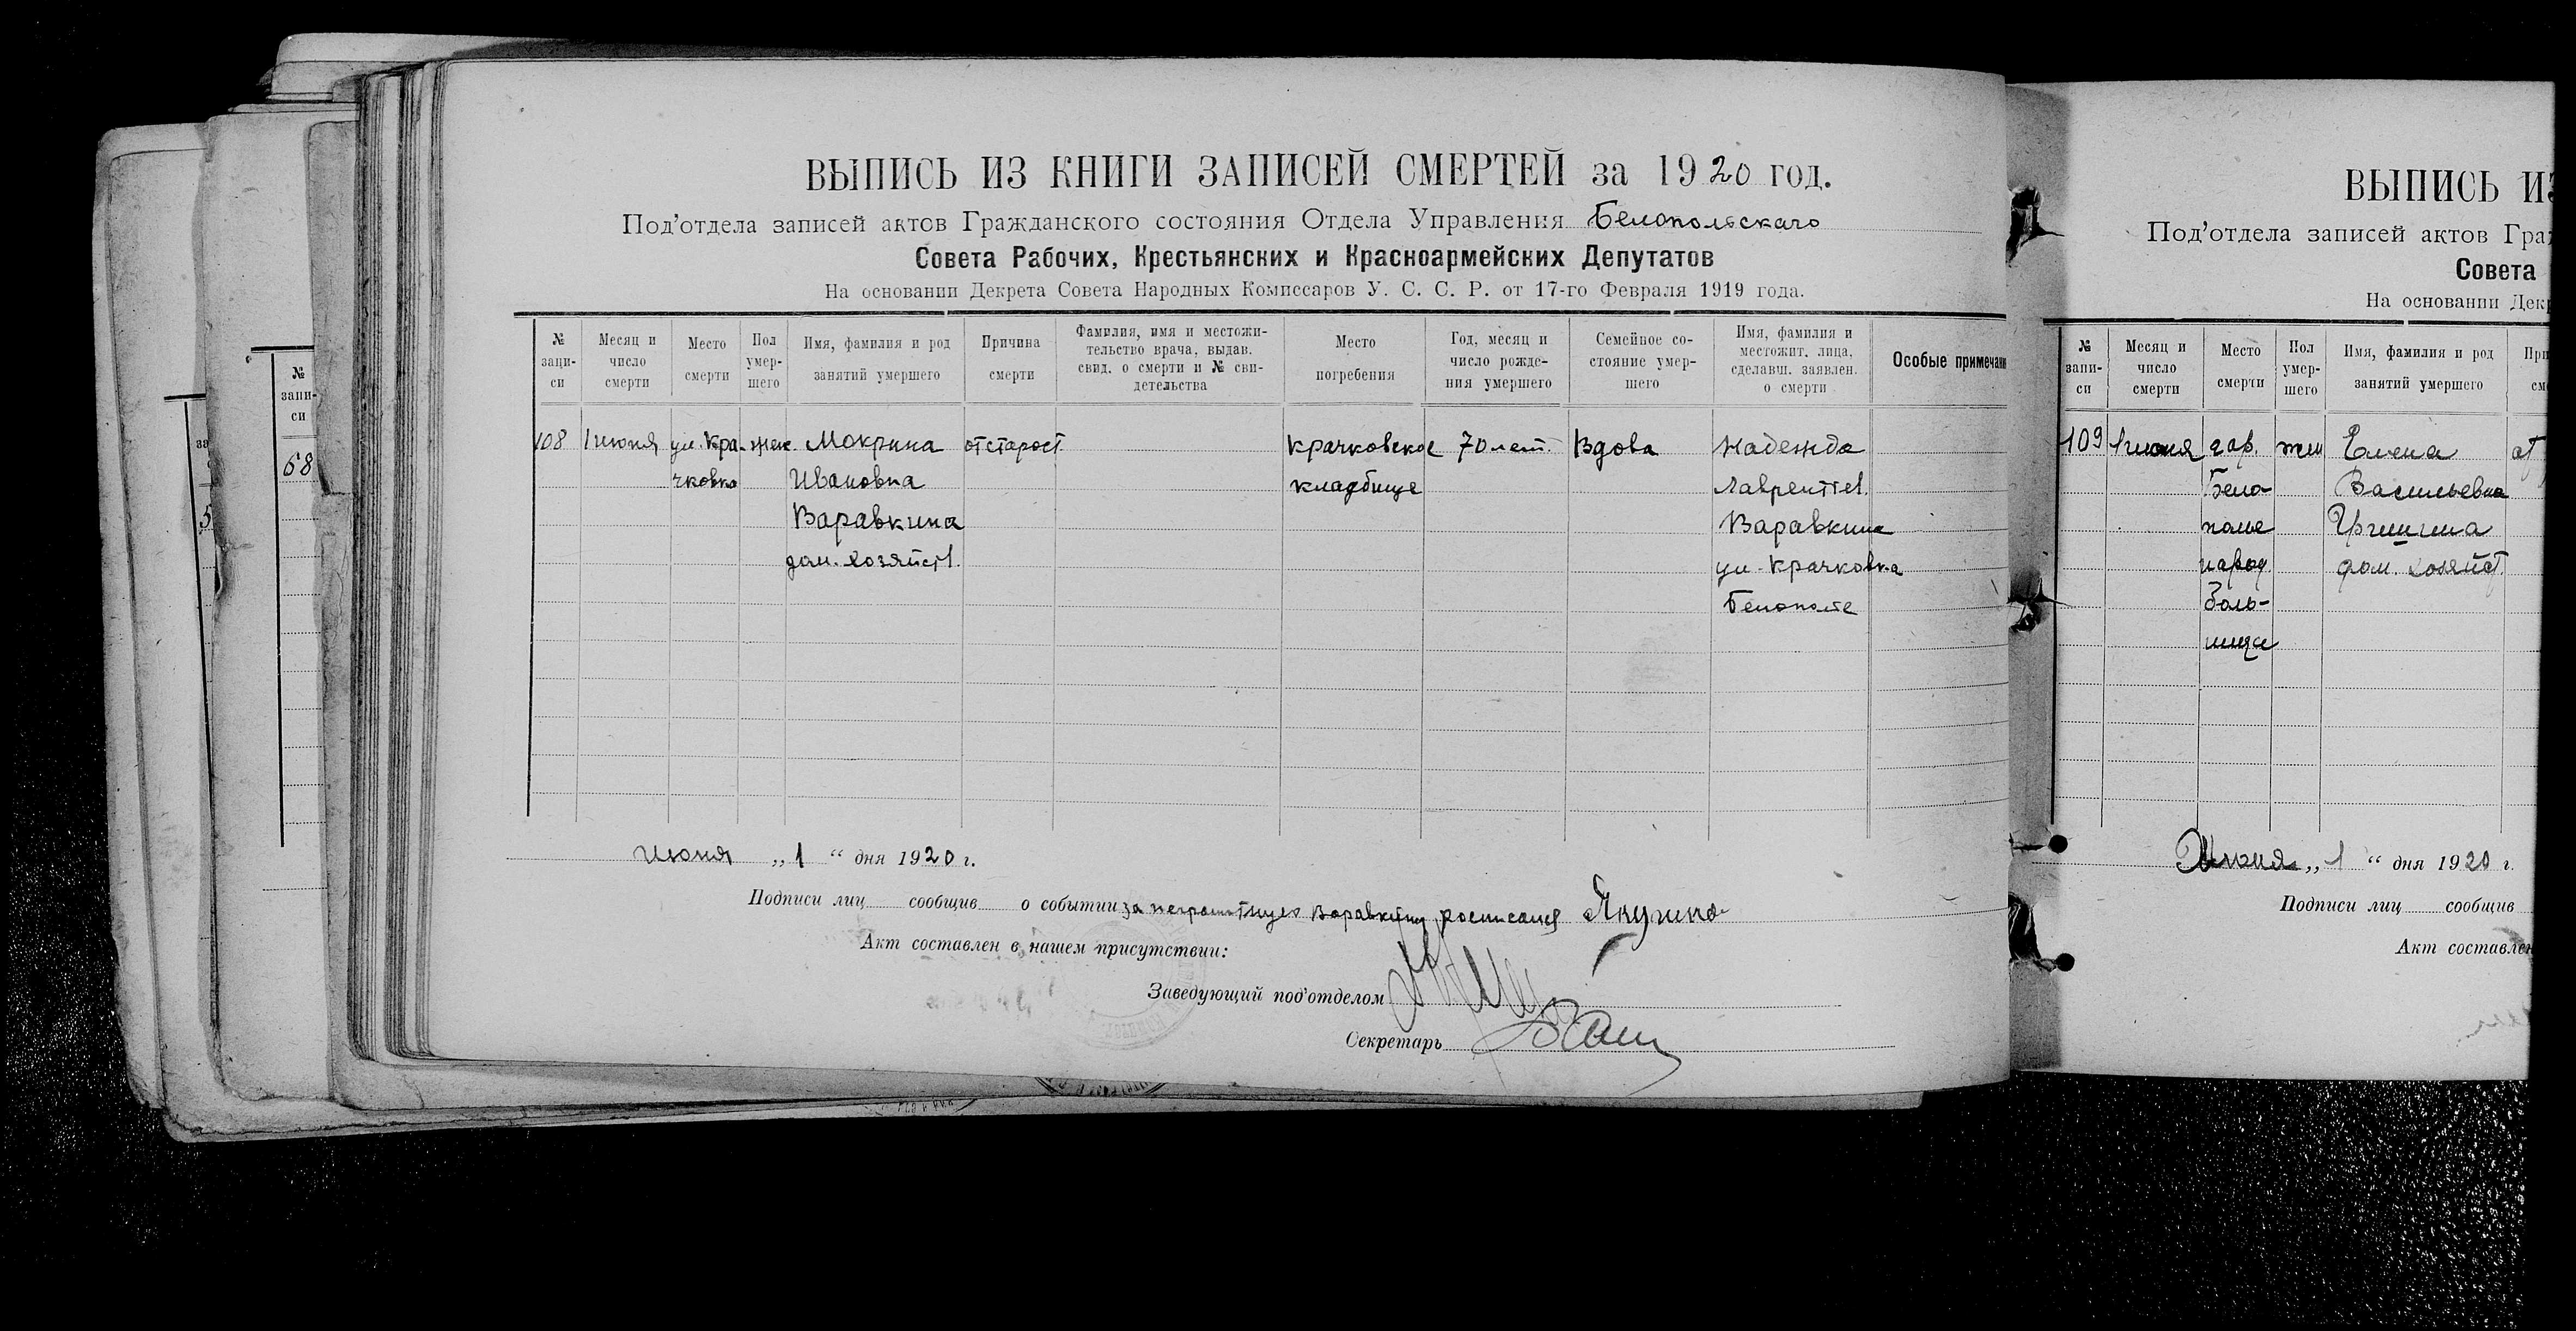 ВЫПИСЬ ИЗ КНИГИ ЗАПИСЕЙ СМЕРТЕЙ за 1920 год.
Под'отдела записей актов Гражданского состояния Отдела Управления Белопольскаго
Совета Рабочих, Крестьянских и Красноармейских Депутатов
На основании Декрета Совета Народных Комиссаров У. С. С. Р. от 17-го Февраля 1919 года.
№ запи-си
Месяц и число смерти
Место смерти
Пол умер-шего
Имя, фамилия и род занятий умершего
Причина смерти
Фамилия, имя и местожи-тельство врача, выдав. свид. о смерти и № сви-детельства
Место погребения
Год, месяц и число рожде-ния умершего
Семейное со-стояние умер-шего
Имя, фамилия и местожит. лица, сделавш. заявлен. о смерти
Особые примечани
108 1 июня ул. Кра- жен. Мокрина от старост Крачковское 70 лет. Вдова Надежда
чковка Ивановна кладбище Лаврентьев.
Варавкина Варавкина
дом. хозяйств. ул. Крачковка
Белополье
Июня „1“ дня 1920 г.
Подписи лиц сообщив о событии за неграмотную Варавкину росписался
Акт составлен в нашем присутствии:
Заведующий под'отделом
Секретарь
ВЫПИСЬ ИЗ
Под'отдела записей актов Гра
Совета
На основании Дек
№ запи-си
Месяц и число смерти
Место смерти
Пол умер-шего
Имя, фамилия и род занятий умершего
109 1 июня гор. жен Елена от
Бело- Васильевна
полье
народ. дом. хозяйст.
Боль-
ница
Июня „1“ дня 1920 г.
Подписи лиц сообщив
Акт составлен
№ запи-си
68
5